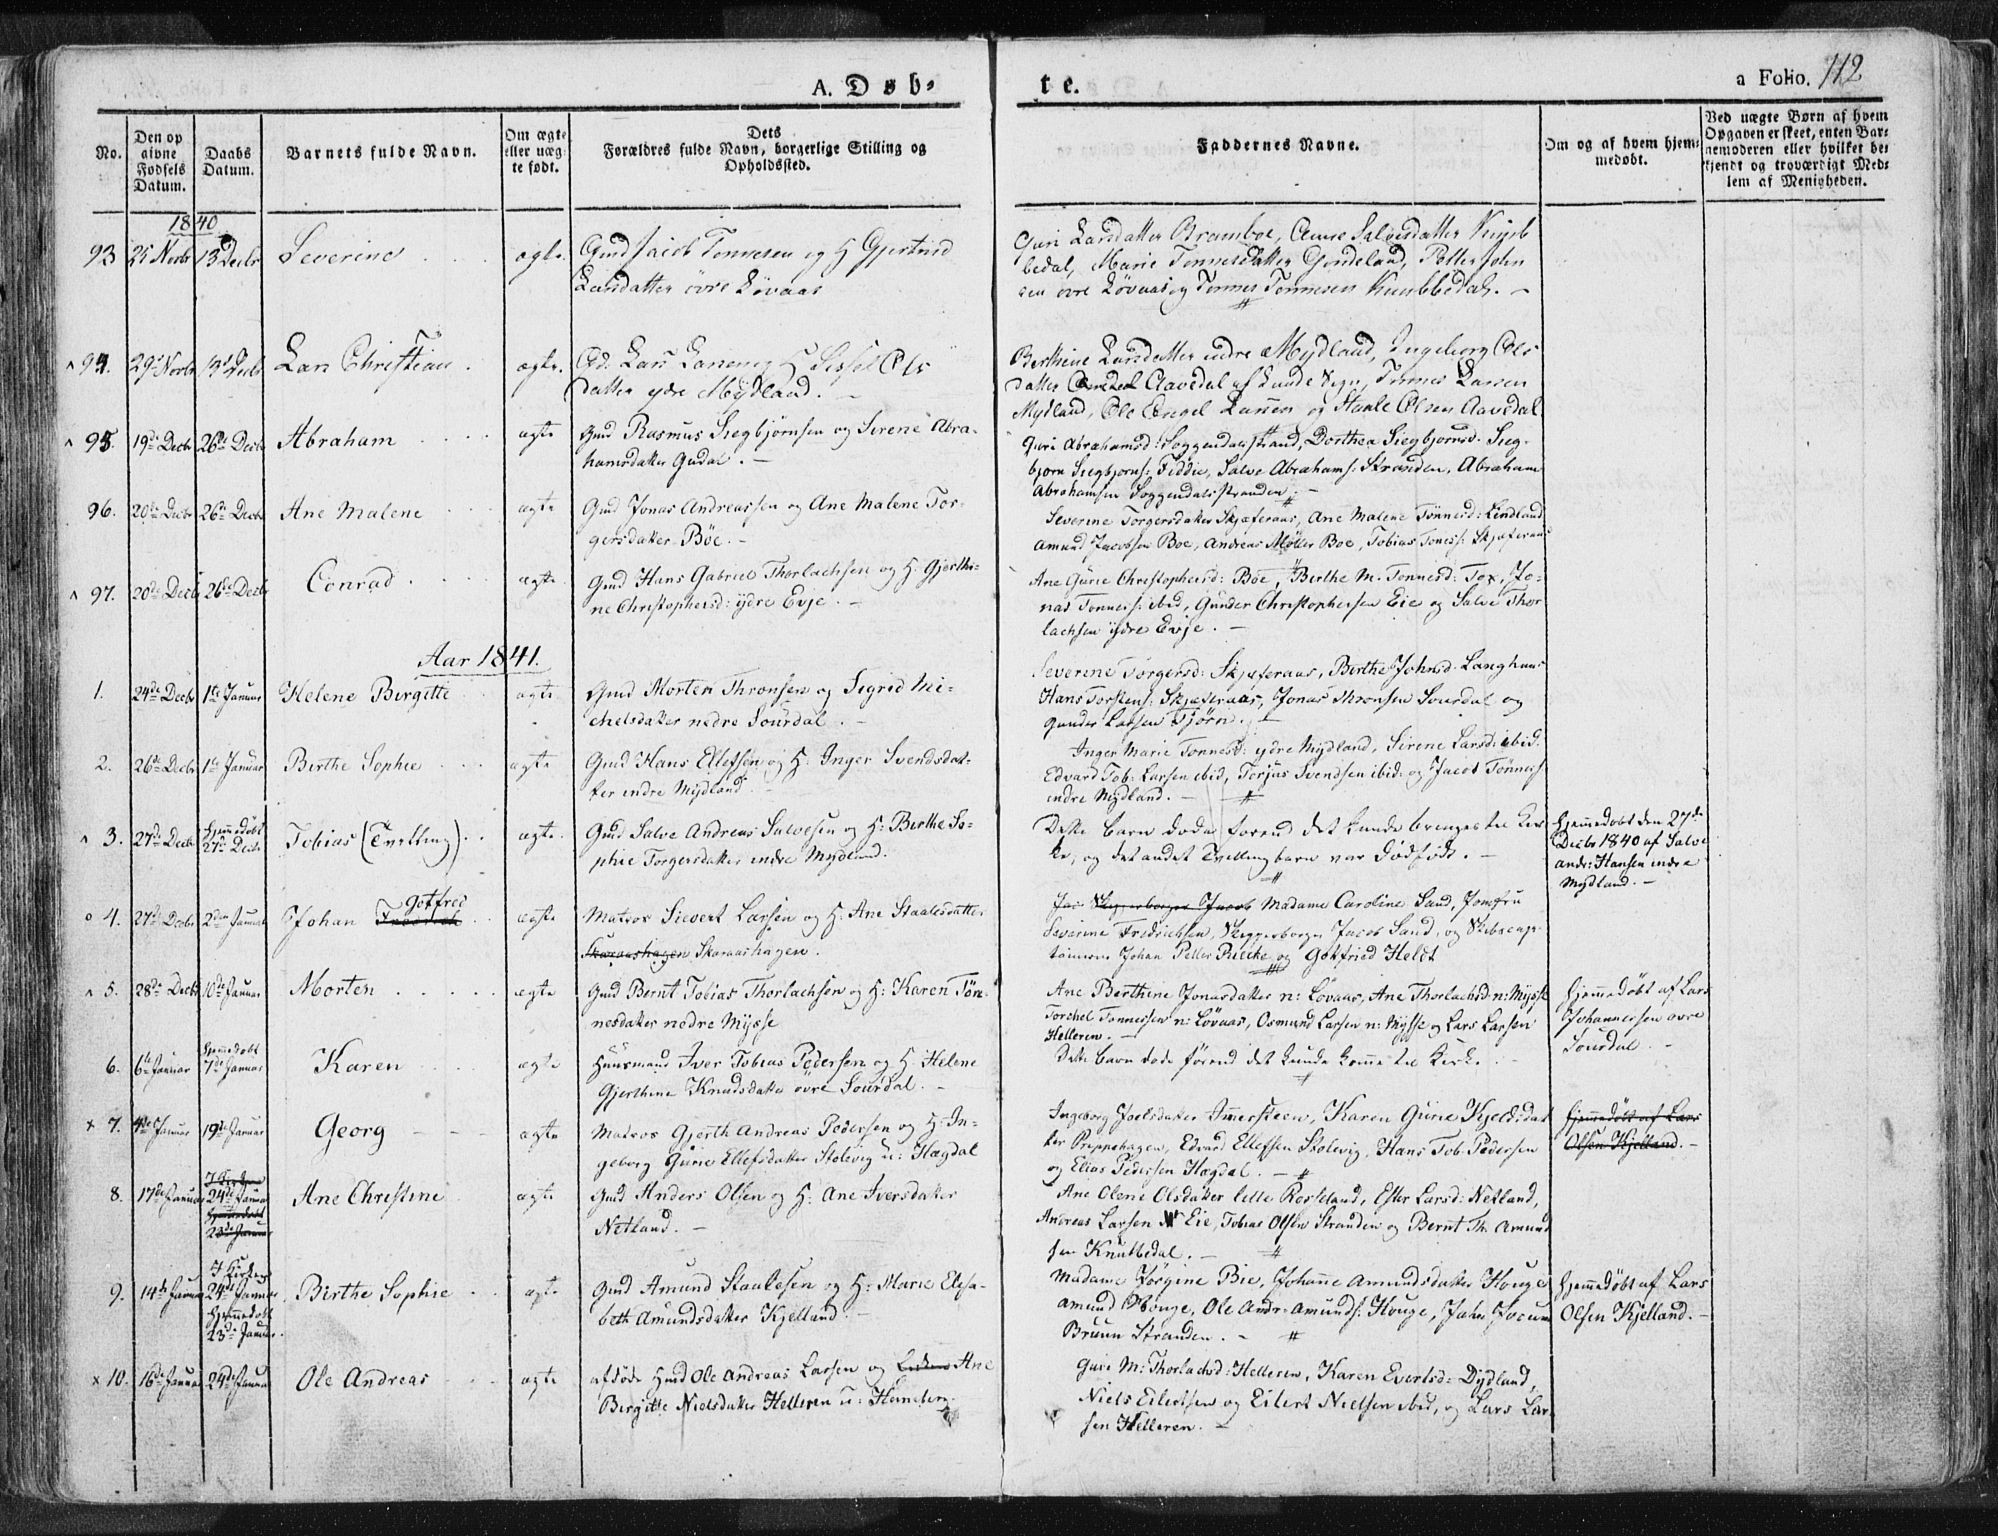 A. Døb-
te.
a Folio. 112
No.
Den op
givne
Fødsels
Datum.
Daabs
Datum.
Barnets fulde Navn.
Om ægte
eller uæg-
te født.
Dets
Forældres fulde Navn, borgerlige Stilling og
Opholdssted.
Faddernes Navne.
Om og af hvem hjem-
medøbt.
Ved uægte Børn af hvem
Opgaven er skeet, enten Bar-
nemoderen eller hvilket be-
kjendt og troværdigt Med-
lem af Menigheden.
1840
93 25 Novbr 13 Decbr Severine ægte. Gmd Jacob Tønnesen og H Gjertrud
Larsdatter övre Lövaas
Guri Larsdatter Bramboe, Salvesdatter
bedal, Marie Tönnesdatter Petter John
sen övre Lövaas og Tönnes Tönnesen Knubbedal.
94. 29de Novbr 13de Decbr Lars Christian ægte. Gmd. Lars Larsen og H Sissel Ols
datter ydre Mydland.
Berthine Larsdatter indre Mydland, Ingeborg Ols
datter Aavedal af Lunde Sogn, Tönnes Larsen
Mydland, Ole Engel Larsen og Staale Olsen Aavedal
95. 19de Decbr 26de Decbr Abraham ægte Gmd Rasmus Siegbjörnsen og Sirene Abra-
hamsdatter Gudal.
Guri Abrahamsd: Soggendalsstrand, Dorthea Siegbjornsd. Sieg-
bjorn Siegbjorns: Feddie, Salve Abrahams: Stranden, Abraham
Abrahamsen Soggendalsstranden.
96. 20de Decbr 26de Decbr Ane Malene ægte Gmd Jonas Andreassen og Ane Malene Tor-
gersdatter Böe.
Severine Torgersdatter Skjæferaas, Ane Malene Tönnesd: Lindland
Amund Jacobsen Boe, Andreas Möller Boe, Tobias Töness: Skjæferaas
97. 20de Decbr 26de Decbr Conrad ægte Gmd Hans Gabriel Thorlachsen og H. Gjerthi-
ne Christophersd: ydre Evje.
Ane Gurie Christophersd: Böe, Birthe M. Tonnesd: Tox, Jo-
nas Tonness: ibid, Gunder Christophersen Eie og Salve Thor
lachsen ydre Evje.
Aar 1841.
1. 24de Decbr 1ste Januar Helene Birgitte ægte Gmd Morten Thronsen og Sigrid Mi-
chelsdatter nedre Sourdal.
Severine Torgersd: Skjæferaas, Birthe Johnsd: Langhuus
Hans Torstens: Skjæferaas, Jonas Thronsen Sourdal og
Gunder Larsen Tjörn.
2. 26de Decbr 1ste Januar Birthe Sophie ægte Gmd Hans Ellefsen og H: Inger Svendsdat-
ter indre Mydland
Inger Marie Tonnesd: ydre Mydland, Sirene Larsd: ibid.
Edvard Tob: Larsen ibid, Torjus Svendsen ibid: og Jacob Tönness:
indre Mydland.
3. 27de Decbr Hjemmedöbt
27de Decbr Tobias (Tvilling) ægte Gmd Salve Andreas Salvesen og H: Birthe So-
phie Torgersdatter indre Mydland.
Dette Barn döde forend det kunde bringes til Kir
ke, og det andet Tvillingbarn var dödfödt.
Hjemmedobt den 27de
Decbr 1840 af Salve
Andr: Hansen indre
Mydland.
4. 27de Decbr 2den Januar Johan Gotfred ægte Matros Sievert Larsen og H. Ane Staalesdatter
Skaraashagen Skaraashagen.
Skipperborger Jacob Madame Caroline Sand, Jomfru
Severine Fredrichsen, Skipperborger Jacob Sand, og Skibscap-
tainerne Johan Peller Puicke og Gotfried Heldt
5. 28de Decbr 10de Januar Morten ægte Gmd Bernt Tobias Thorlachsen og H: Karen Tön-
nesdatter nedre Mysse
Ane Berthine Jonasdatter n: Lövaas, Ane Thorlachsd n: Mysse
Torchel Tonnessen n: Lövaas, Osmund Larsen n: Mysse og Lars Larsen
Helleren.
Hjemmedöbt af Lars
Johannessen övre
Sourdal.
6. 6te Januar Hjemmedobt
7de Januar Karen ægte Huusmand Iver Tobias Pedersen og H. Helene
Gjerthine Knudsdatter övre Sourdal.
Dette barn dode förend det kunde komme til Kirke.
7. 4de Januar 19de Januar Georg ægte Matros Gjerth Andreas Pedersen og H: In-
geborg Gurie Ellefsdatter Stolevig u: Hægdal
Ingeborg Joelsdatter Immersteen, Karen Gurie Kjeldsdat
ter Proppehagen, Edvard Ellefsen Stolevig, Hans Tob: Pedersen
og Elias Pedersen Hægdal.
Hjemmedöbt af Lars
Olsen Kjelland.
8. 17de Januar I Kirken
24de Januar
Hjemmedobt
23de Januar Ane Christine ægte Gmd Anders Olsen og H: Ane Iversdatter
Netland.
Ane Olene Olsdatter lille Rosseland, Ester Larsd: Netland,
Andreas Larsen Eie, Tobias Olsen Stranden og Bernt Th: Amund
sen Knubbedal.
9. 14de Januar I Kirken
24de Januar
Hjemmedobt
23de Januar. Birthe Sophie ægte Gmd Amund Staalesen og H: Marie Elesa-
beth Amundsdatter Kjelland.
Madame Jörgine Bie, Johanne Amundsdatter Houge
Amund Houge, Ole Andr: Amunds: Houge, Jahn Jocum
Bruun Stranden.
Hjemmedöbt af Lars
Olsen Kjelland.
10. 16de Januar 24de Januar Ole Andreas ægte afdöde Gmd Ole Andreas Larsen og Ane
Birgitte Nielsdatter Helleren u:
Guri M: Thorlachsd: Helleren, Karen Evertsd: Dydland,
Niels Eilertsen og Eilert Nielsen ibid, og Lars Lar-
sen Helleren.